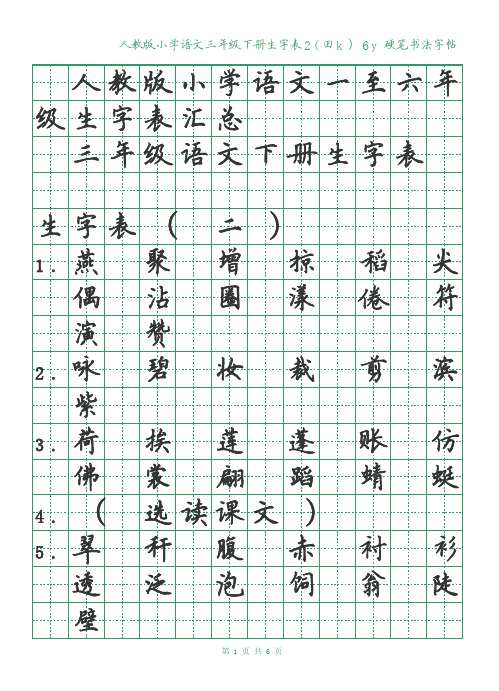 人教版小学语文三年级下册生字表2(田k) 6y 硬笔书法字帖
人教版小学语文一至六年
级生字表汇总
三年级语文下册生字表
生字表（ 二 ）
1. 燕 聚 增 掠 稻 尖
偶 沾 圈 漾 倦 符
演 赞
2. 咏 碧 妆 裁 剪 滨
紫
3. 荷 挨 莲 蓬 胀 仿
佛 裳 翩 蹈 蜻 蜓
4. （ 选读课文 ）
5. 翠 秆 腹 赤 衬 衫
透 泛 泡 饲 翁 陡
壁
第 1 页 共 6 页